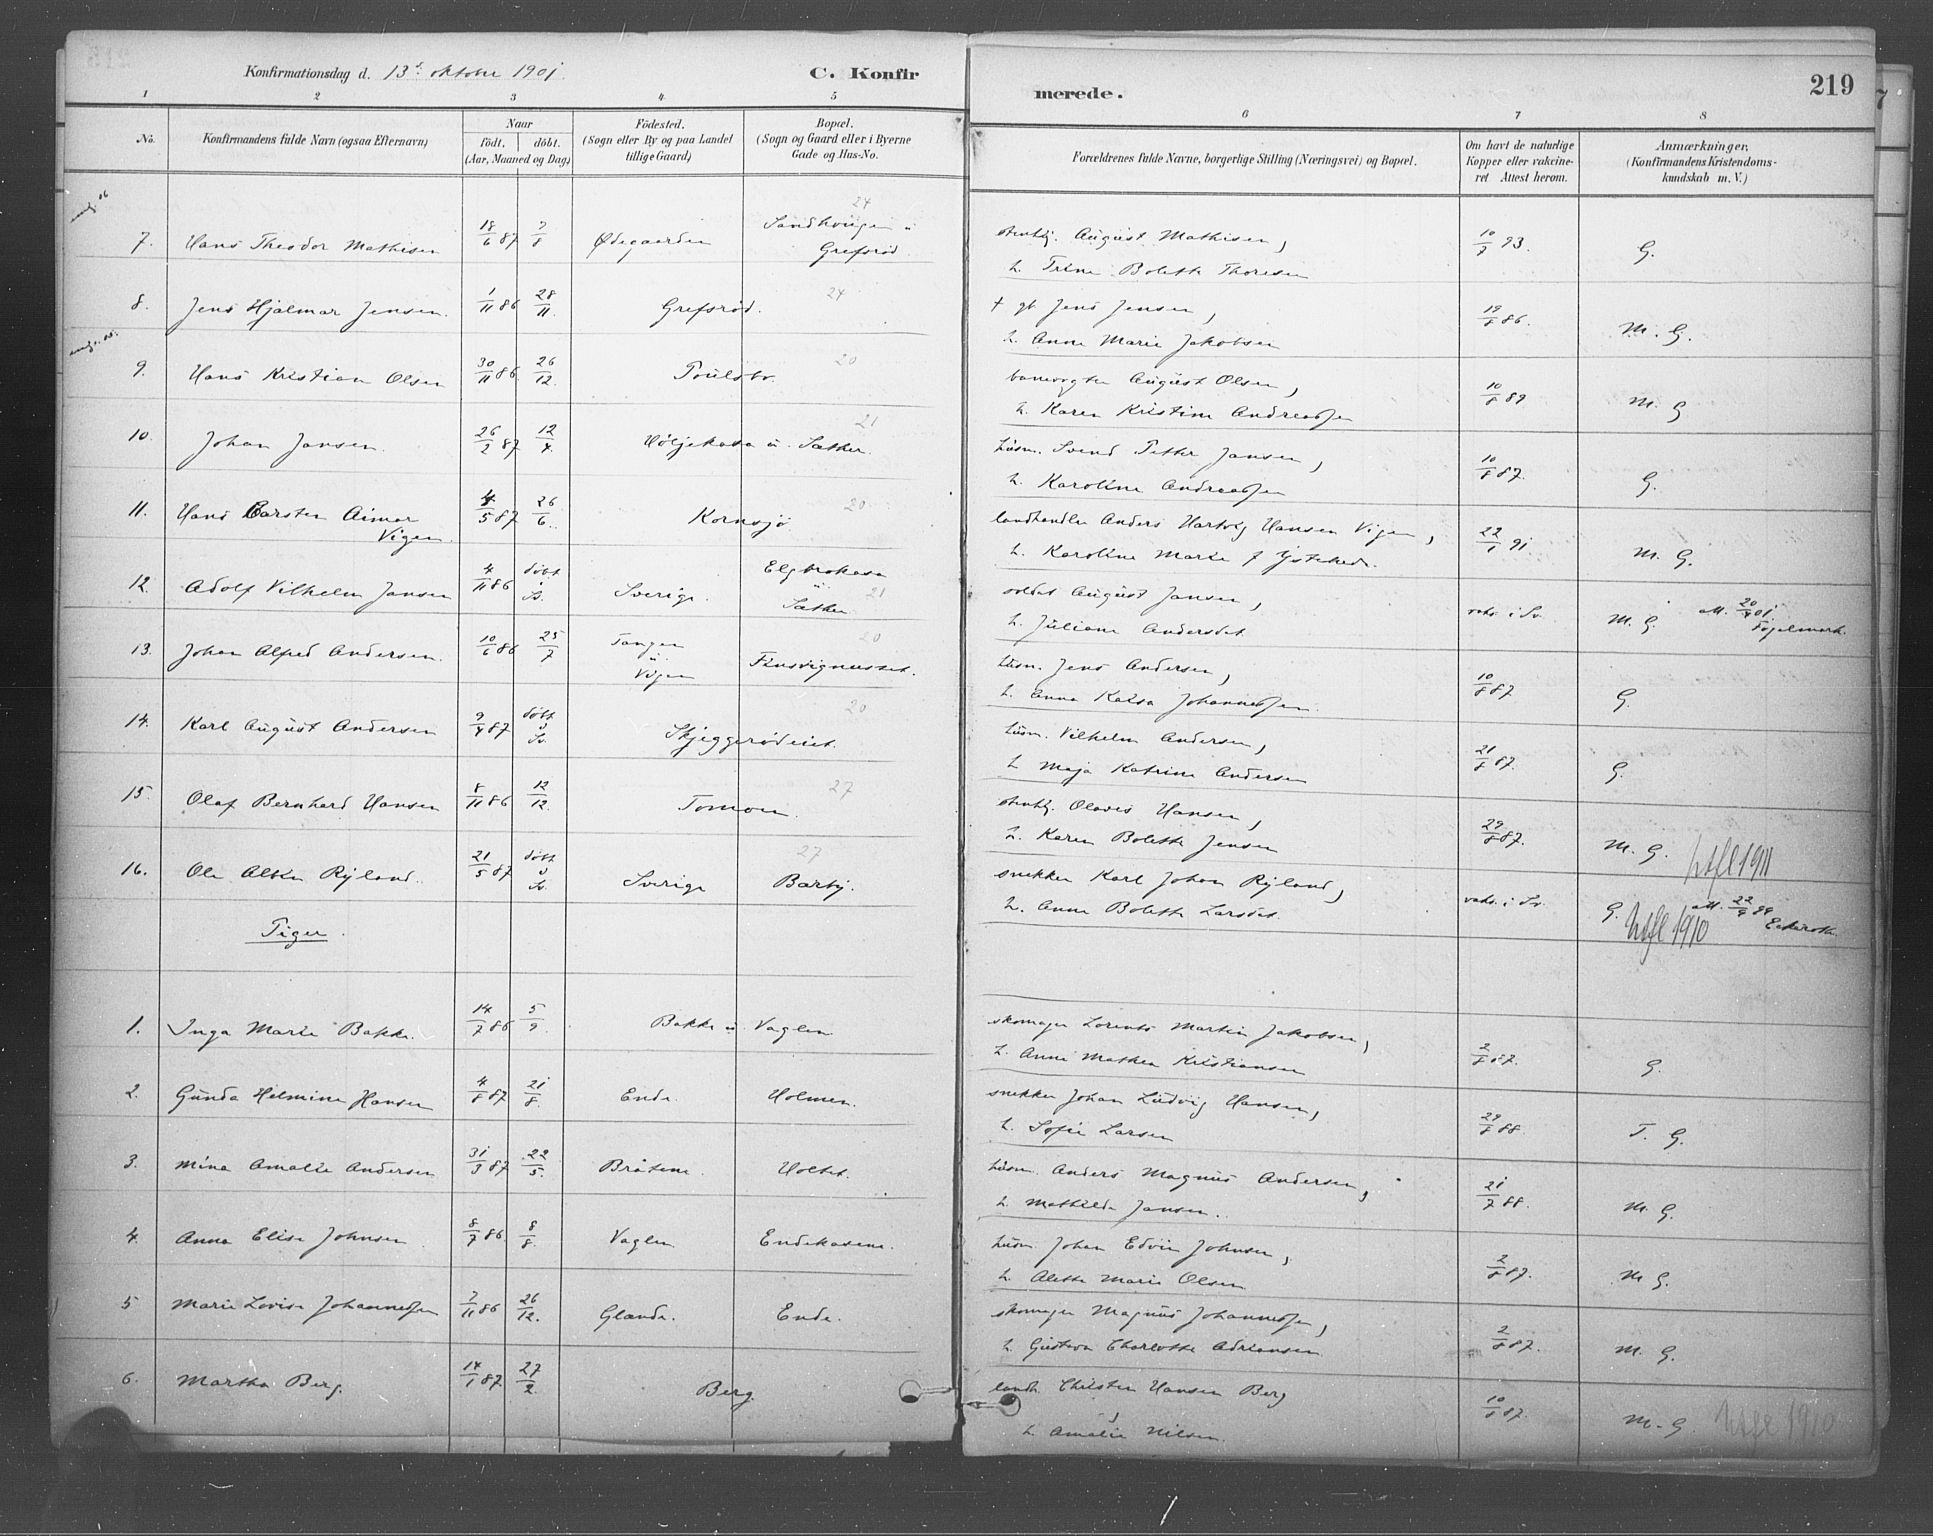 Konfirmationsdag d. 13de oktober 1901.
C. Konfirmerede.
219
1 2 3 4 5 6 7 8
No.
Konfirmandens fulde Navn (ogsaa Efternavn)
Naar
født, døbt.
(Aar, Maaned og Dag)
Fødested.
(Sogn eller By og paa Landet
tillige Gaard)
Bopæl.
(Sogn og Gaard eller i Byerne
Gade og Hus-No.
Forældrenes fulde Navne, borgerlige Stilling (Næringsvei) og Bopæl.
Om havt de naturlige
Kopper eller vakcine-
ret Attest herom.
Anmærkninger.
(Konfirmandens Kristendoms-
kundskab m. V.)
24
7. Hans Theodor Mathisen 18/6 87 7/8 Ødegaarden Sandhougen u Grefsrød
stenh. August Mathisen,
h. Trine Bolette Thoresen 10/7 93 G.
8. Jens Hjalmar Jensen. 1/11 86 28/11. Grefsrød. 24
† gb Jens Jensen,
h. Anne Marie Jakobsen 19/8 86. M. G.
9. Hans Kristian Olsen 30/11 86. 26/12. Poulsbo. 20
banevogter August Olsen,
h. Karen Kristine Andreassen 10/8 89 M. G
10. Johan Jansen. 26/2 87 12/4. Høljekasa u. Sæther. 21
husm. Svend Petter Jansen,
h. Karoline Andreassen 10/8 87. G.
11. Hans Carsten Aimar
Vigen. 4/5 87 26/6. Kornsjø 20
landhandler Anders Hartvig Hansen Vigen,
h. Karoline Marie f Ystehede. 22/1 91 M. G.
12. Adolf Vilhelm Jansen 4/11 86 døbt i Sv. Sverige. Elgbrokasa u Sæther 21
soldat August Jansen,
h. Juliane Andersdat. vaks. i Sv. M. G. att. 20/9 01 Fogelmark.
13. Johan Alfred Andersen. 10/6 86 25/7 Tangen u. Vigen Finsvignesset. 20
husm. Jens Andersen,
h. Anna Kaisa Johannessen. 10/8 87 G.
14. Karl August Andersen 9/4 87 døbt i Sv. Skjeggerødeiet. 20
husm. Vilhelm Andersen,
h Maja Katrine Andersen 21/8 87. G.
15. Olaf Bernhard Hansen 8/11 86 12/12. Tomon. 27
stenh. Olaves Hansen,
h. Karen Bolette Jensen 29/8 87. M. G. Utfl 1911
16. Ole Albin Ryland. 21/5 87 døbt i Sv. Sverige Bærby. 27
snekker Karl Johan Ryland,
h. Anne Bolette Larsdat. vaks. i Sv. G. att. 22/9 99
Utfl 1910
Piger.
1. Inga Marie Bakke. 14/7 86 5/9. Bakke u. Vaglen
skomager Lorents Martin Jakobsen,
h. Anne Mathea Kristiansen 2/8 87. G.
2. Gunda Helmine Hansen 4/8 87 21/8. Ende. Holmen.
snekker Johan Ludvig Hansen,
h. Sofie Larsen 29/8 88 T. G.
3. Mina Amalie Andersen 31/3 87 22/5. Bråtene. Holtet.
husm. Anders Magnus Andersen,
h. Mathilde Jansen. 21/7 88. M. G.
4. Anna Elise Johnsen 8/7 86. 8/8. Vaglen Endekasene.
husm. Johan Edvin Johnsen,
h. Alette Marie Olsen 2/8 87. M G.
5 Marie Lovise Johannessen 7/11 86 26/12. Glænde. Ende.
skomager Magnus Johannessen,
h. Gustava Charlotte Adriansen. 2/8 87. M. G.
6. Martha Berg. 14/1 87. 27/2. Berg.
landh. Christen Hansen Berg,
h. Amalie Nilsen. 10/8 87. M. G Utfl 1910